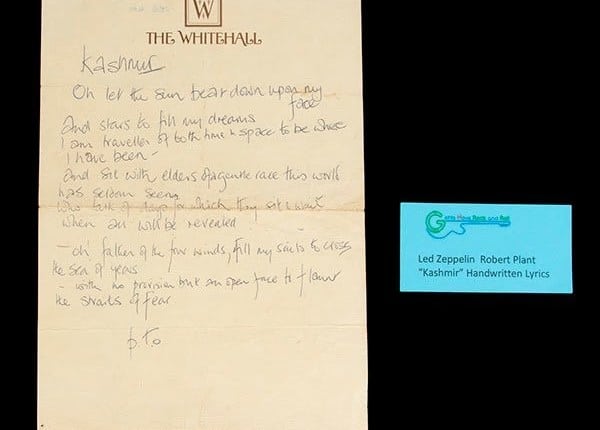 W
THE WHITEHALL
Kashmir
Oh let the sun beat down upon my
face
And stars to fill my dreams
I am traveller of both time & space to be where
I have been -
And sit with elders of a gentle race this world
has seldom seen
Who talk of days for which they sit & wait
when all will be revealed
- oh father of the four winds, fill my sails to cross
the sea of years
- with no provision but an open face to flaunt
the straits of fear
p.t.o
Led Zeppelin Robert Plant
"Kashmir" Handwritten Lyrics